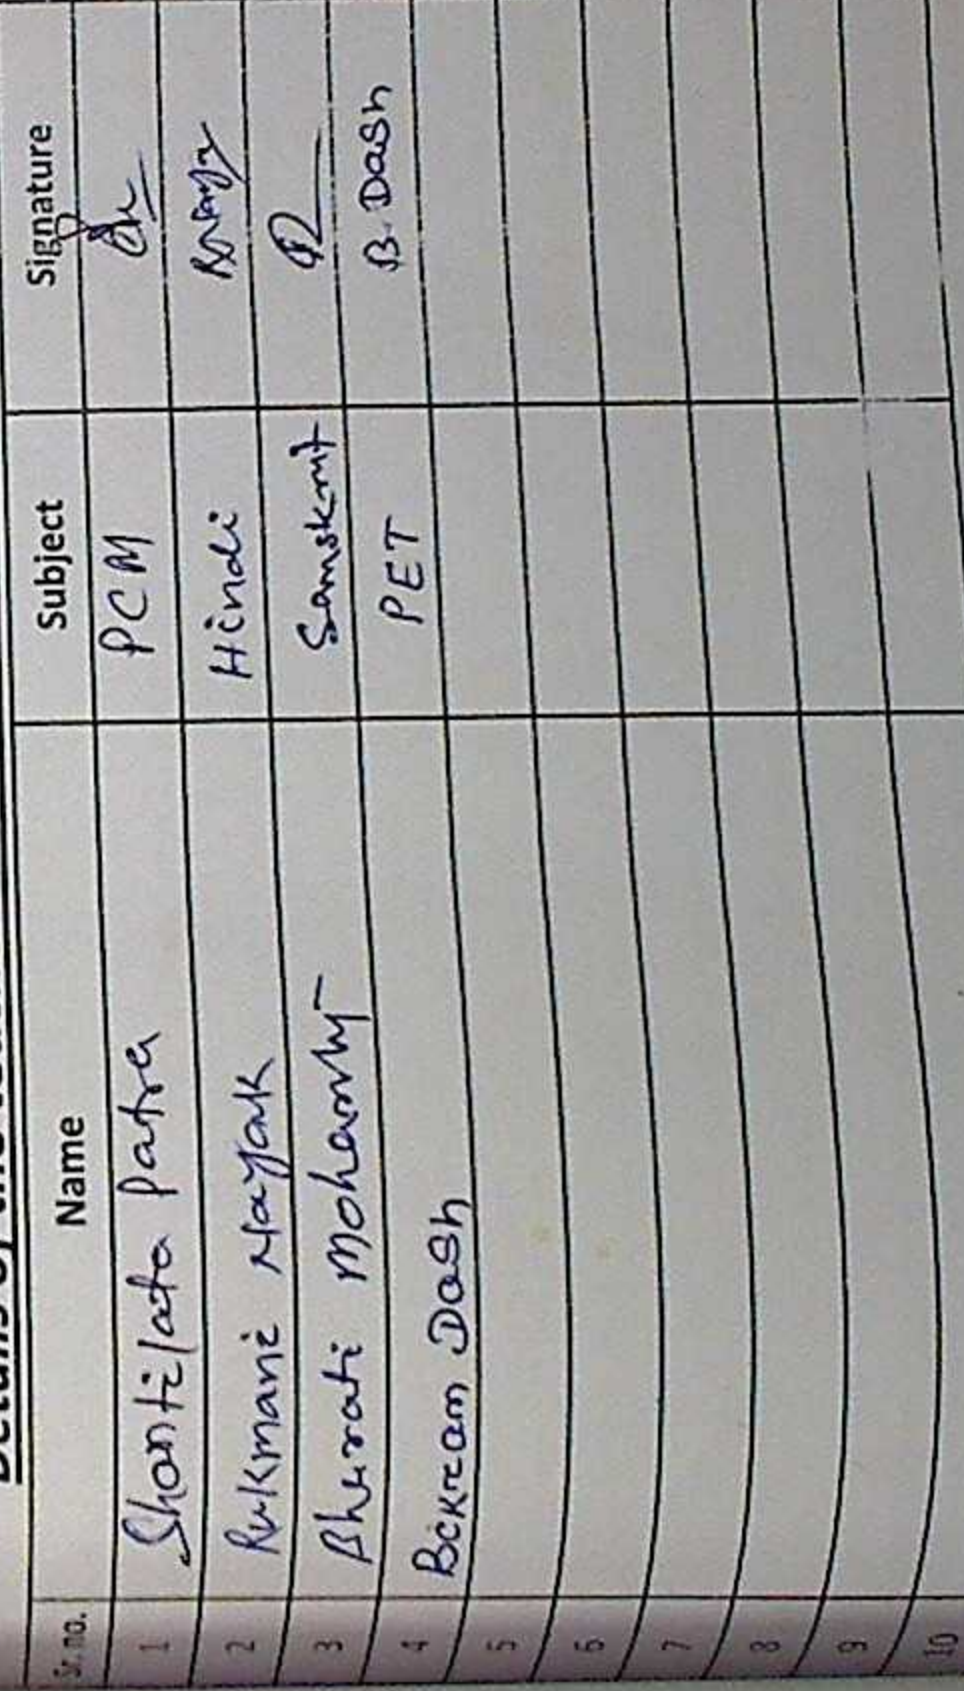 Sr. no. Name Subject Signature
1 Shantilata Patra PCM
2 Rukmani Nayak Hindi
3 Bharati Mohanty Samskrit
4 Bikram Dash PET B. Dash
5
6
7
8
9
10